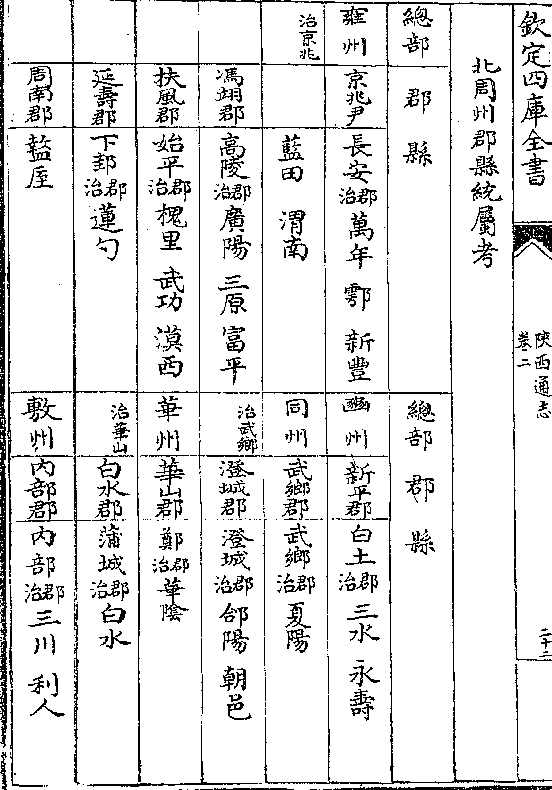 欽定四庫全書
陝西通志
卷二
二十二
北周州郡縣統屬考
總部 郡 縣 總部 郡 縣
雍州 京兆尹 長安郡治 萬年 鄠 新豐 豳州 新平郡 白土郡治 三水 永壽
治京兆 藍田 渭南 同州 武鄉郡 武鄉郡治 夏陽
馮翊郡 高陵郡治 廣陽 三原 富平 治武鄉 澄城郡 澄城郡治 郃陽 朝邑
扶風郡 始平郡治 槐里 武功 漠西 華州 華山郡 鄭郡治 華陰
延壽郡 下邽郡治 蓮勺 治華山 白水郡 蒲城郡治 白水
周南郡 盩厔 敷州 內部郡 內部郡治 三川 利人